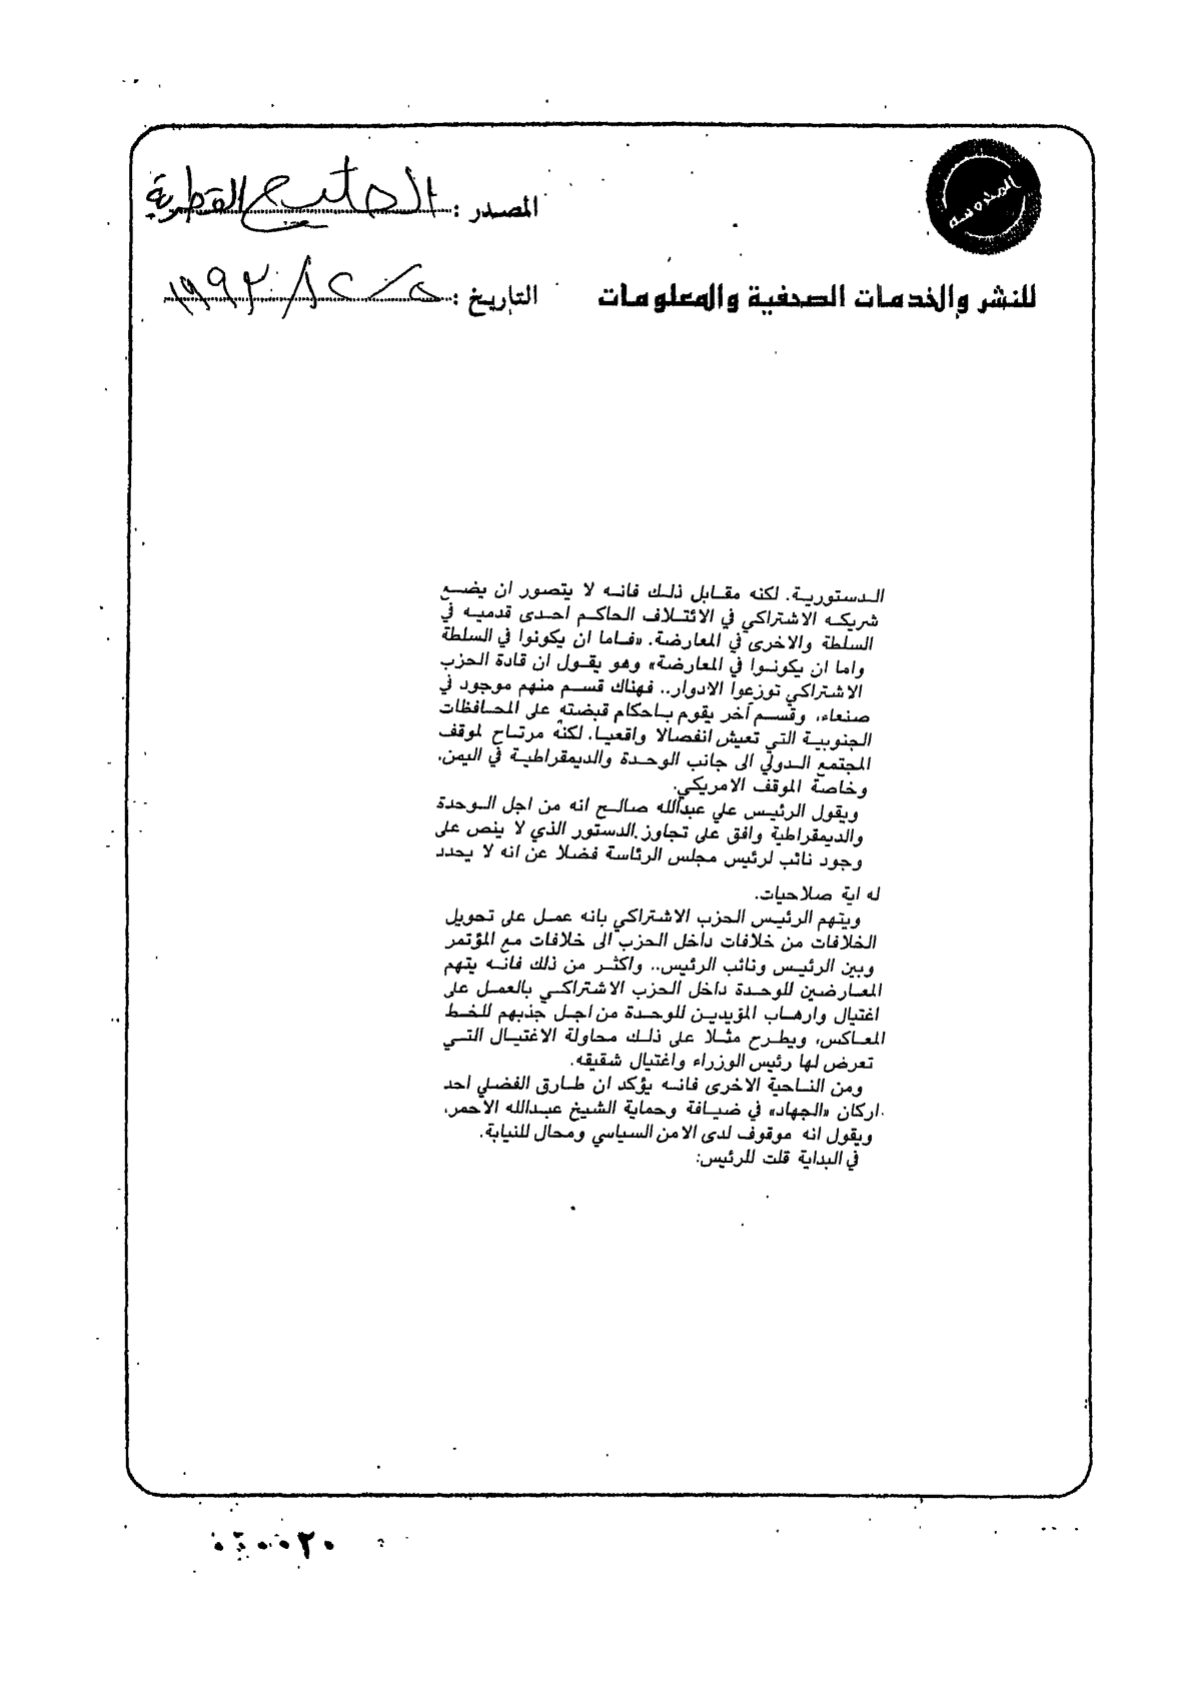 المصدر : الخليج القطرية
التاريخ :
للنشر والخدمات الصحفية والمعلومات
الدستورية. لكنه مقابل ذلك فانه لا يتصور ان يضع
شريكه الاشتراكي في الائتلاف الحاكم احدى قدميه في
السلطة والاخرى في المعارضة. «فاما ان يكونوا في السلطة
واما ان يكونوا في المعارضة» وهو يقول ان قادة الحزب
الاشتراكي توزعوا الادوار.. فهناك قسم منهم موجود في
صنعاء، وقسم آخر يقوم باحكام قبضته على المحافظات
الجنوبية التي تعيش انفصالا واقعيا. لكنه مرتاح لموقف
المجتمع الدولي الى جانب الوحدة والديمقراطية في اليمن،
وخاصة الموقف الامريكي.
ويقول الرئيس علي عبدالله صالح انه من اجل الوحدة
والديمقراطية وافق على تجاوز الدستور الذي لا ينص على
وجود نائب لرئيس مجلس الرئاسة فضلا عن انه لا يحدد
له اية صلاحيات.
ويتهم الرئيس الحزب الاشتراكي بانه عمل على تحويل
الخلافات من خلافات داخل الحزب الى خلافات مع المؤتمر
وبين الرئيس ونائب الرئيس.. واكثر من ذلك فانه يتهم
المعارضين للوحدة داخل الحزب الاشتراكي بالعمل على
اغتيال وارهاب المؤيدين للوحدة من اجل جذبهم للخط
المعاكس، ويطرح مثلا على ذلك محاولة الاغتيال التي
تعرض لها رئيس الوزراء واغتيال شقيقه.
ومن الناحية الاخرى فانه يؤكد ان طارق الفضلي احد
اركان «الجهاد» في ضيافة وحماية الشيخ عبدالله الأحمر،
ويقول انه موقوف لدى الامن السياسي ومحال للنيابة.
في البداية قلت للرئيس: